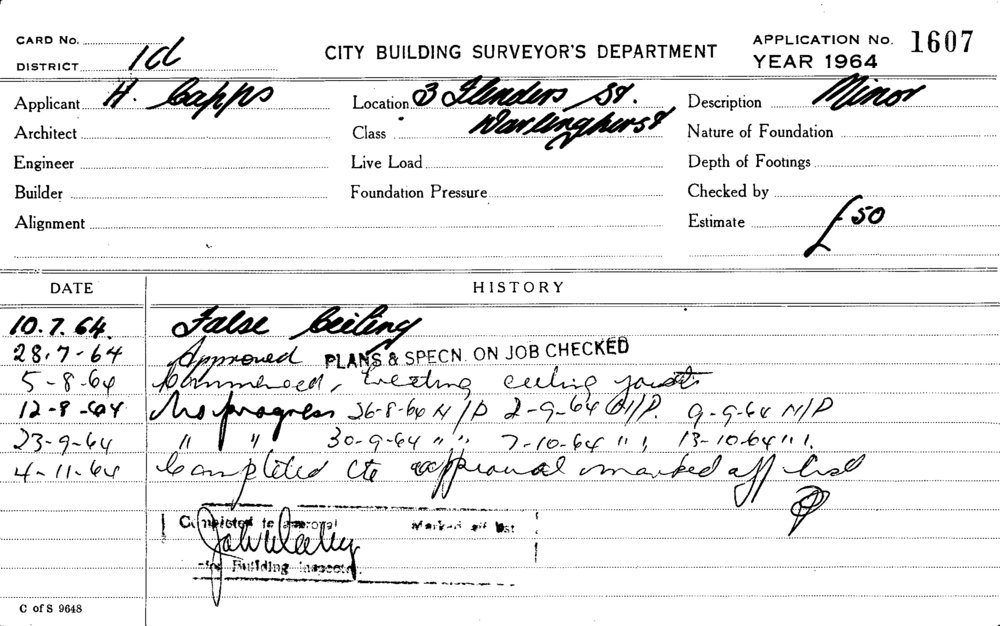 CARD No.
DISTRICT 1d
CITY BUILDING SURVEYOR'S DEPARTMENT
APPLICATION No. 1607
YEAR 1964
Applicant H. Capps
Location 3 Flinders St.
Description Minor
Architect
Class Darlinghurst
Nature of Foundation
Engineer
Live Load
Depth of Footings
Builder
Foundation Pressure
Checked by
Alignment
Estimate £50
DATE HISTORY
10.7.64. False Ceiling
28.7-64 Approved PLANS & SPECN. ON JOB CHECKED
5-8-64 Commenced, Erecting ceiling joists
12-8-64 No progress 26-8-64 N/P 2-9-64 N/P. 9-9-64 N/P
23-9-64 " " 30-9-64 " " 7-10-64 " " 13-10-64 " "
4-11-64 Completed to approval marked off list
Completed to approval Marked off list
for Building Inspector
C of S 9648